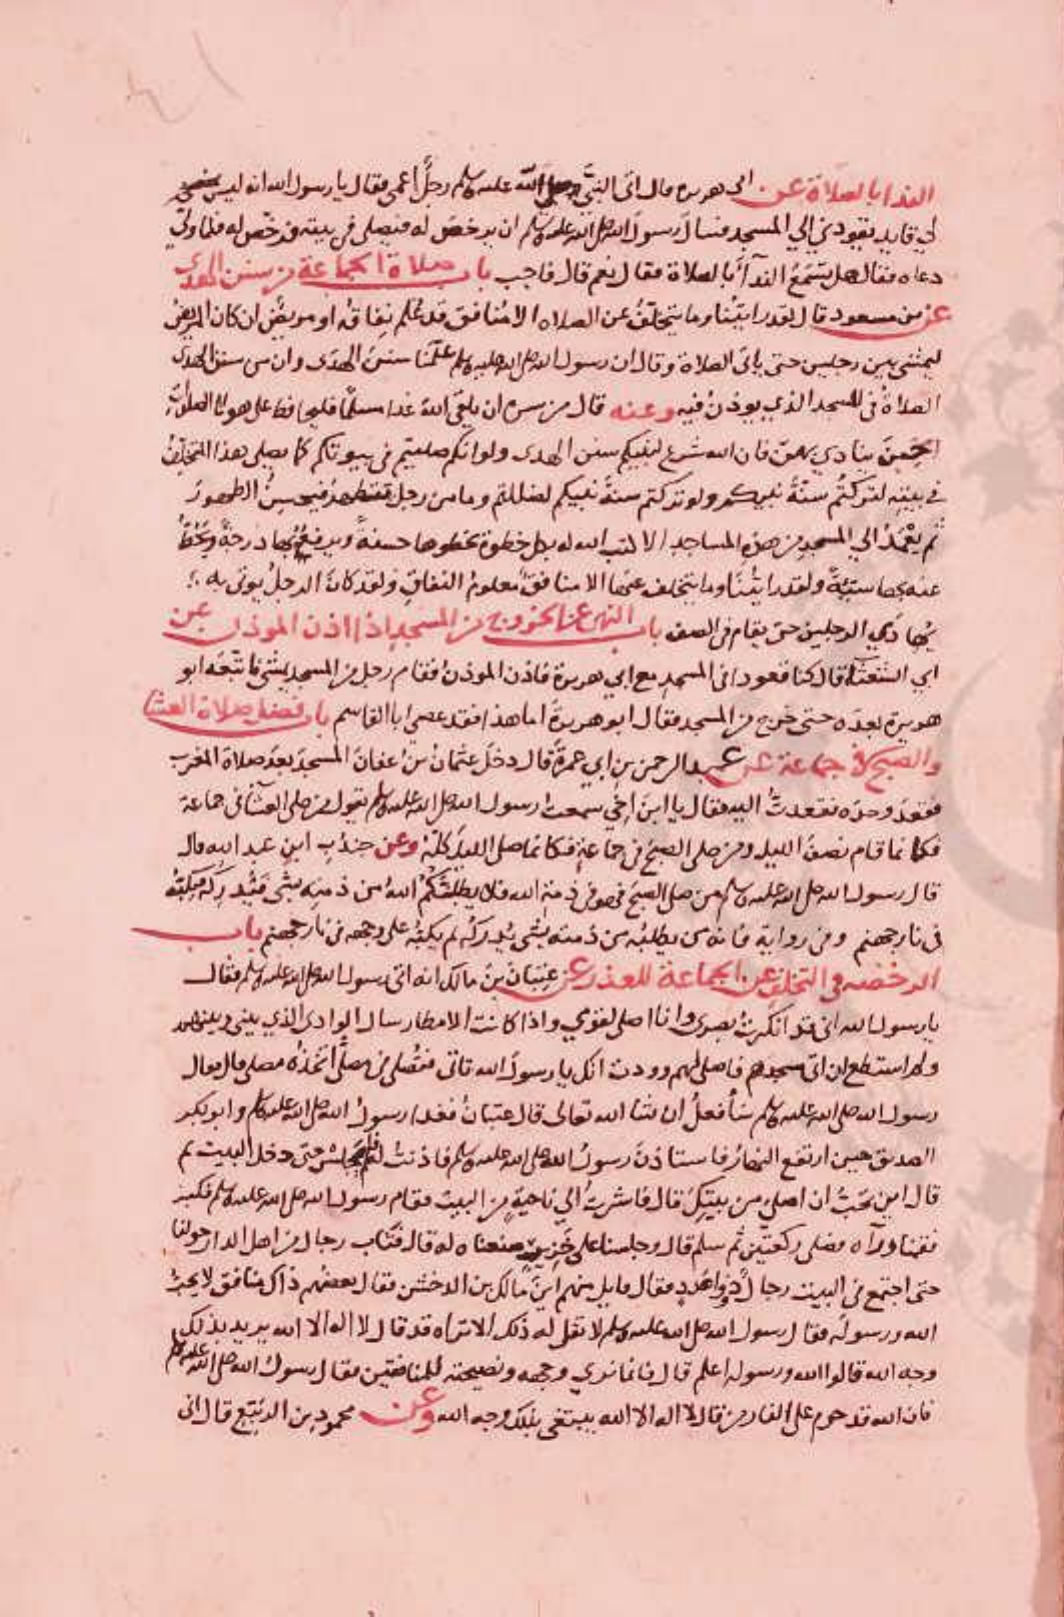 الندا بالصلاة عن ابي هريره قال اتى النبي صلى الله عليه وسلم رجل اعمى فقال يا رسول الله انه ليس
لي قايد يقودني الي المسجد فسال رسول الله صلى الله عليه وسلم ان يرخص له فيصلي في بيته فرخص له فلما ولي
دعاه فقال هل تسمع النداء بالصلاة فقال نعم قال فاجب باب صلاة الجماعة من سنن الهدى
عن بن مسعود قال لقد رايتنا وما يتخلف عن الصلاه الا منافق قد علم نفاقه او مريض ان كان المريض
ليمشي بين رجلين حتى ياتي الصلاة وقال ان رسول الله صلى الله عليه وسلم علمنا سنن الهدى وان من سنن الهدى
الصلاة في المسجد الذي يوذن فيه وعنه قال من سره ان يلقى الله غدا مسلما فليحافظ على هولا الصلوات
الخمس حيث ينادي بهن فان الله شرع لنبيكم سنن الهدى ولو انكم صليتم في بيوتكم كما يصلي هذا المتخلف
في بيته لتركتم سنة نبيكم ولو تركتم سنة نبيكم لضللتم وما من رجل يتطهر فيحسن الطهور
ثم يعمد الي المسجد من هذه المساجد الا كتب الله له بكل خطوة يخطوها حسنة ويرفعه بها درجة ويحط
عنه بها سيئة ولقد رايتنا وما يتخلف عنها الا منافق معلوم النفاق ولقد كان الرجل يوتى به
يهادي الرجلين حتى يقام في الصف باب النهي عن الخروج من المسجد اذا اذن الموذن عن
ابي الشعثاء قال كنا قعودا في المسجد مع ابي هريرة فاذن الموذن فقام رجل من المسجد يمشي فاتبعه ابو
هريرة بصره حتى خرج من المسجد فقال ابو هريرة اما هذا فقد عصى ابا القاسم باب فضل صلاة العشا
والصبح في جماعة عن عبد الرحمن بن ابي عمرة قال دخل عثمان بن عفان المسجد بعد صلاة المغرب
فقعد وحده فقعدت اليه فقال يا ابن اخي سمعت رسول الله صلى الله عليه وسلم يقول من صلى العشا في جماعة
فكانما قام نصف الليل ومن صلى الصبح في جماعة فكانما صلى الليل كله وعن جندب ابن عبد الله قال
قال رسول الله صلى الله عليه وسلم من صلى الصبح فهو في ذمة الله فلا يطلبنكم الله من ذمته بشي فيدركه فيكبه
في نار جهنم وفي رواية فانه من يطلبه من ذمته بشي يدركه ثم يكبه على وجهه في نار جهنم باب
الرخصه في التخلف عن الجماعة للعذر عن عتبان بن مالك انه اتى رسول الله صلى الله عليه وسلم فقال
يا رسول الله اني قد انكرت بصري وانا اصلي لقومي واذا كانت الامطار سال الوادي الذي بيني وبينهم
ولم استطع ان اتي مسجدهم فاصلي لهم وددت انك يا رسول الله تاتي فتصلي في مصلى اتخذه مصلى قال فقال
رسول الله صلى الله عليه وسلم سافعل ان شا الله تعالى قال عتبان فغدا رسول الله صلى الله عليه وسلم وابو بكر
الصديق حين ارتفع النهار فاستاذن رسول الله صلى الله عليه وسلم فاذنت له فلم يجلس حتى دخل البيت ثم
قال اين تحب ان اصلي من بيتك قال فاشرت الي ناحية من البيت فقام رسول الله صلى الله عليه وسلم فكبر
فقمنا وراه فصلى ركعتين ثم سلم قال وجلسناه على خزير صنعناه له قال فثاب رجال من اهل الدار حولنا
حتى اجتمع في البيت رجال ذوو عدد فقال قايل منهم اين مالك بن الدخشن فقال بعضهم ذاك منافق لا يحب
الله ورسوله فقال رسول الله صلى الله عليه وسلم لا تقل له ذلك الا تراه قد قال لا اله الا الله يريد بذلك
وجه الله قالوا الله ورسوله اعلم قال فانما نري وجهه ونصيحته للمنافقين فقال رسول الله صلى الله عليه وسلم
فان الله قد حرم على النار من قال لا اله الا الله يبتغي بذلك وجه الله وعن محمود بن الربيع قال اني